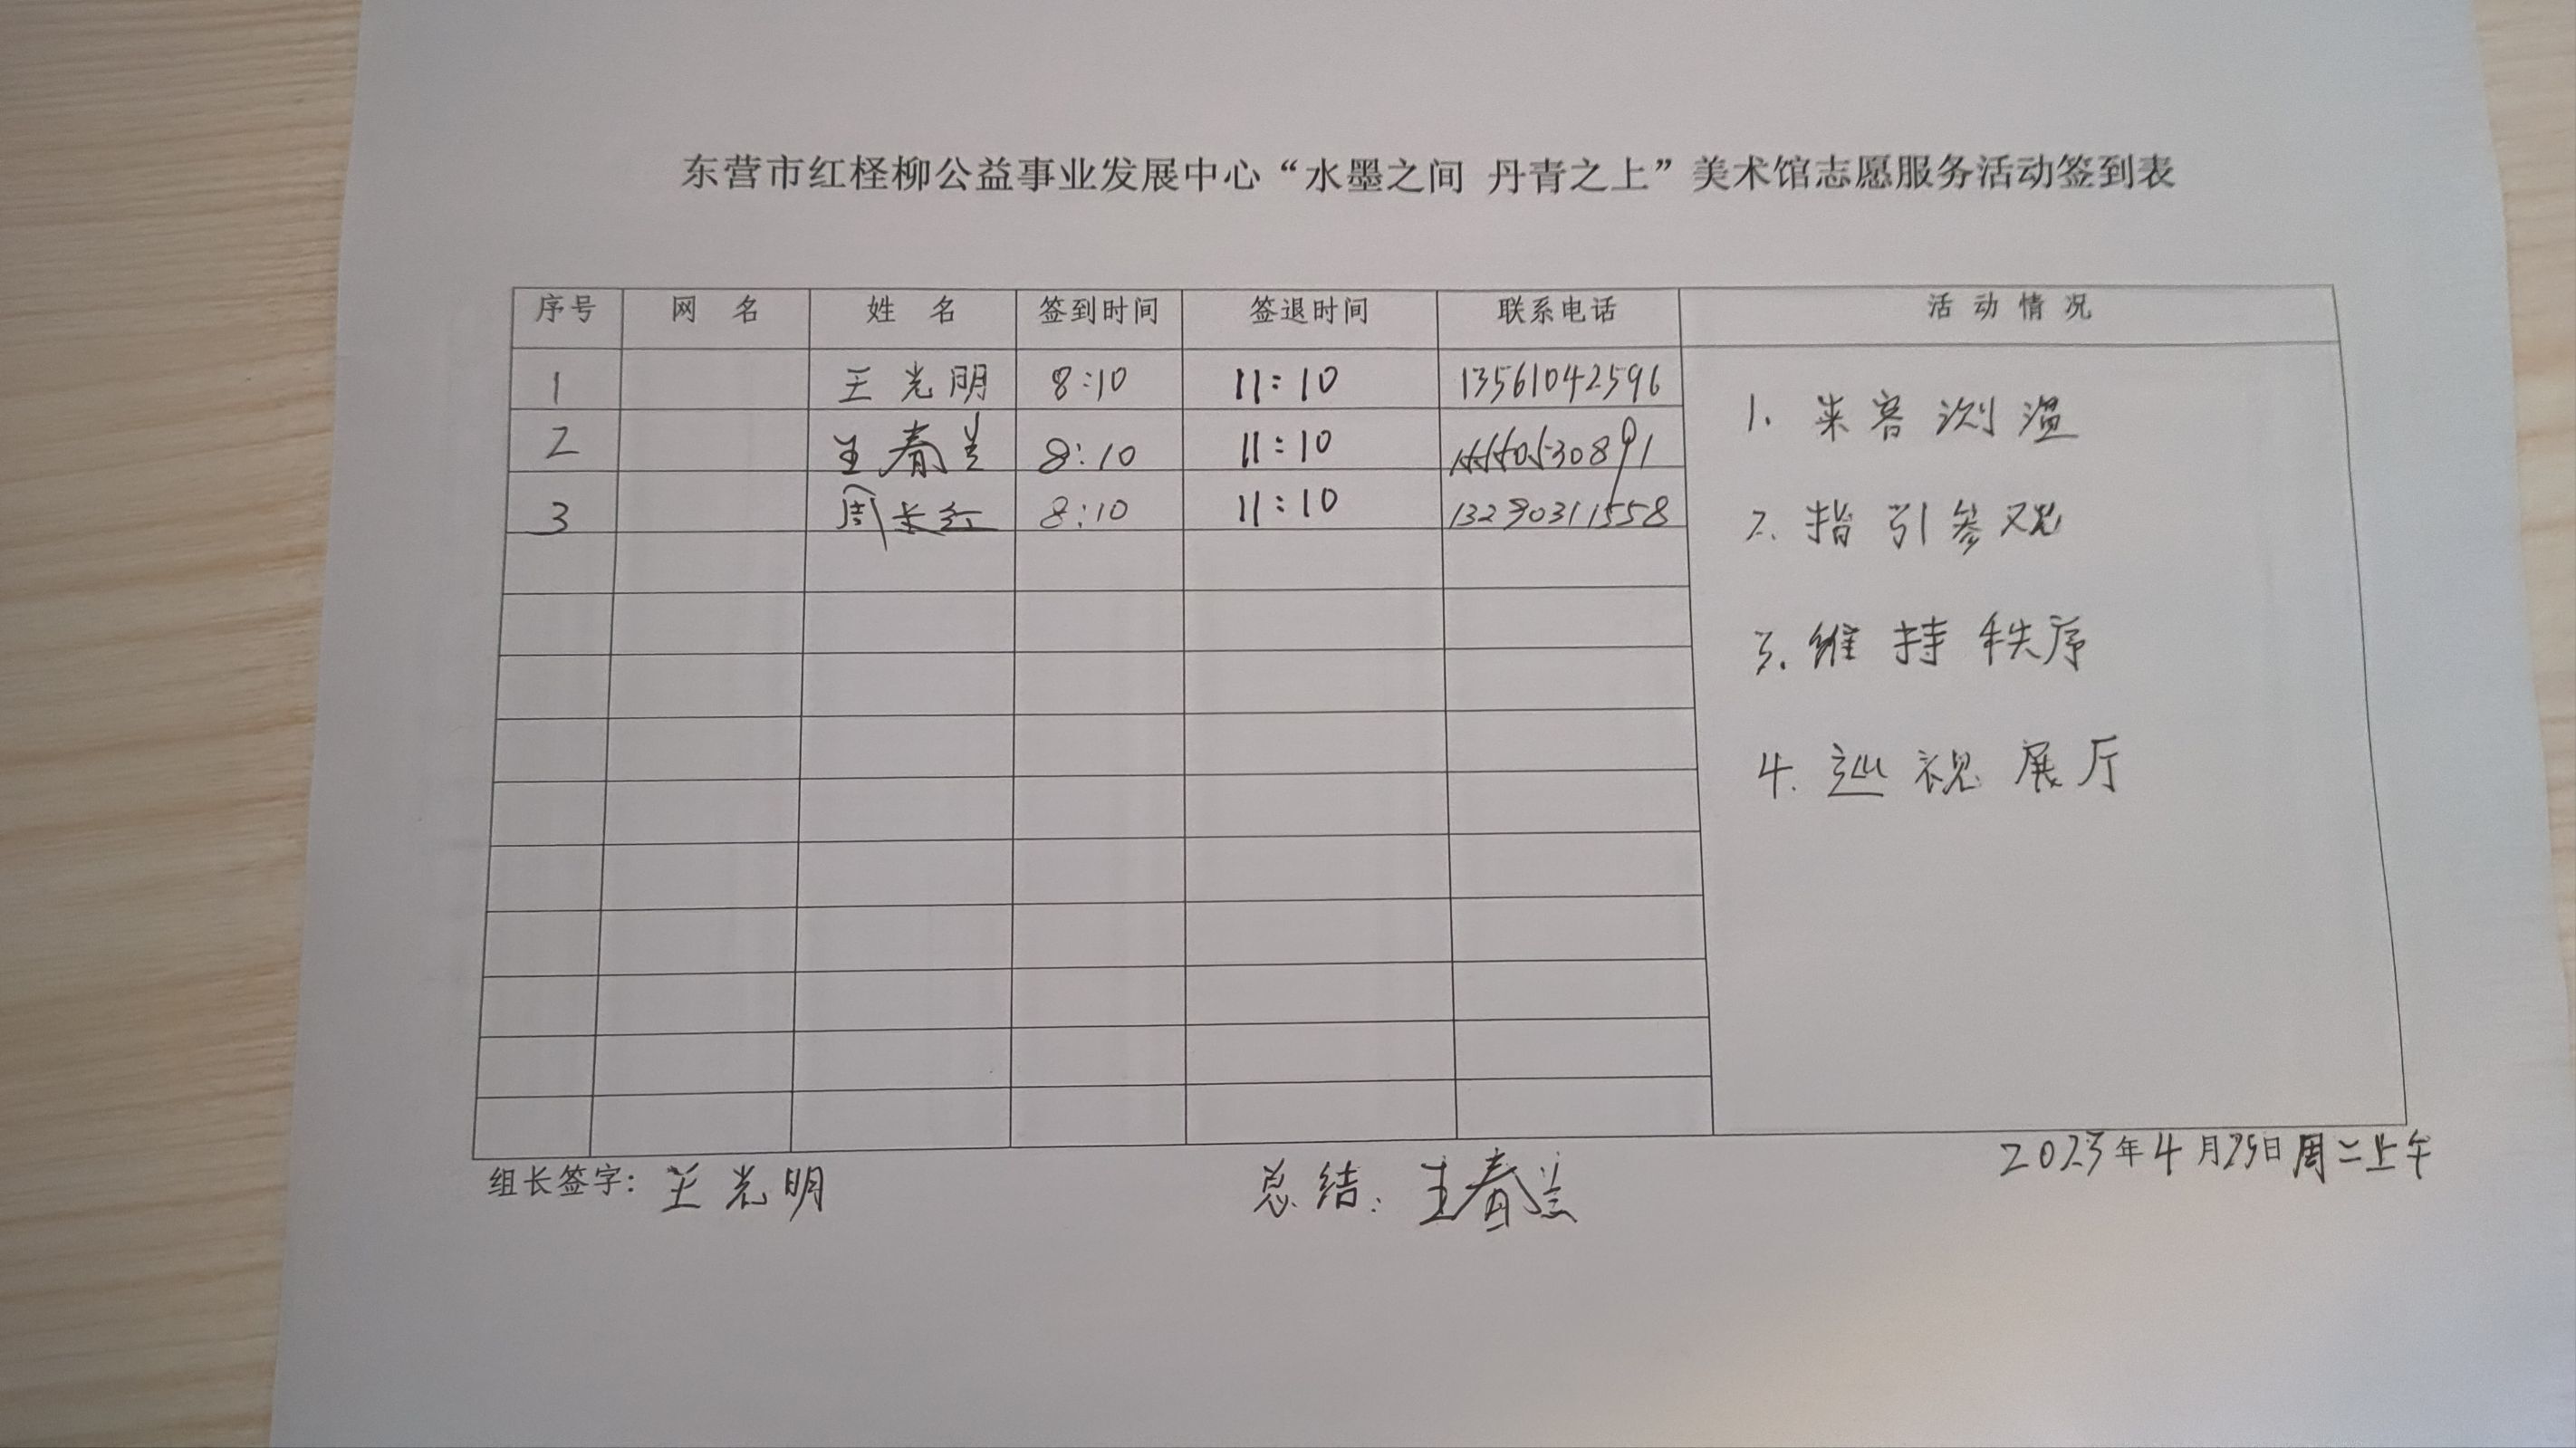 东营市红柽柳公益事业发展中心“水墨之间 丹青之上”美术馆志愿服务活动签到表
序号 网 名 姓 名 签到时间 签退时间 联系电话 活 动 情 况
1 王光明 8:10 11:10 13561042596
2 王春兰 8:10 11:10
3 周长红 8:10 11:10 13290311558
1. 来客测温
2. 指引参观
3. 维持秩序
4. 巡视展厅
组长签字: 王光明 总结: 王春兰 2023年4月25日周二上午